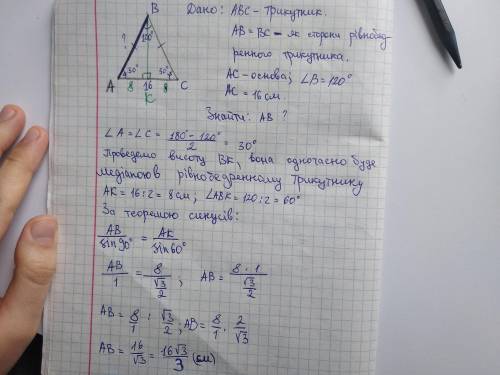 B
120°
?
30°
30°
A
8
16
8
C
K
Дано: ABC - трикутник.
AB = BC - як сторони рівнобед-
ренного трикутника.
AC - основа; ∠B = 120°
AC = 16 см.
Знайти: AB ?
∠A = ∠C = (180° - 120°)/2 = 30°
Проведемо висоту BK, вона одночасно буде
медіаною в рівнобедренному трикутнику
AK = 16 : 2 = 8 см; ∠ABK = 120 : 2 = 60°
За теоремою синусів:
AB/sin90° = AK/sin60°
AB/1 = 8/(√3/2) ; AB = (8·1)/(√3/2)
AB = 8/1 : √3/2 ; AB = 8/1 · 2/√3
AB = 16/√3 = 16√3/3 (см)